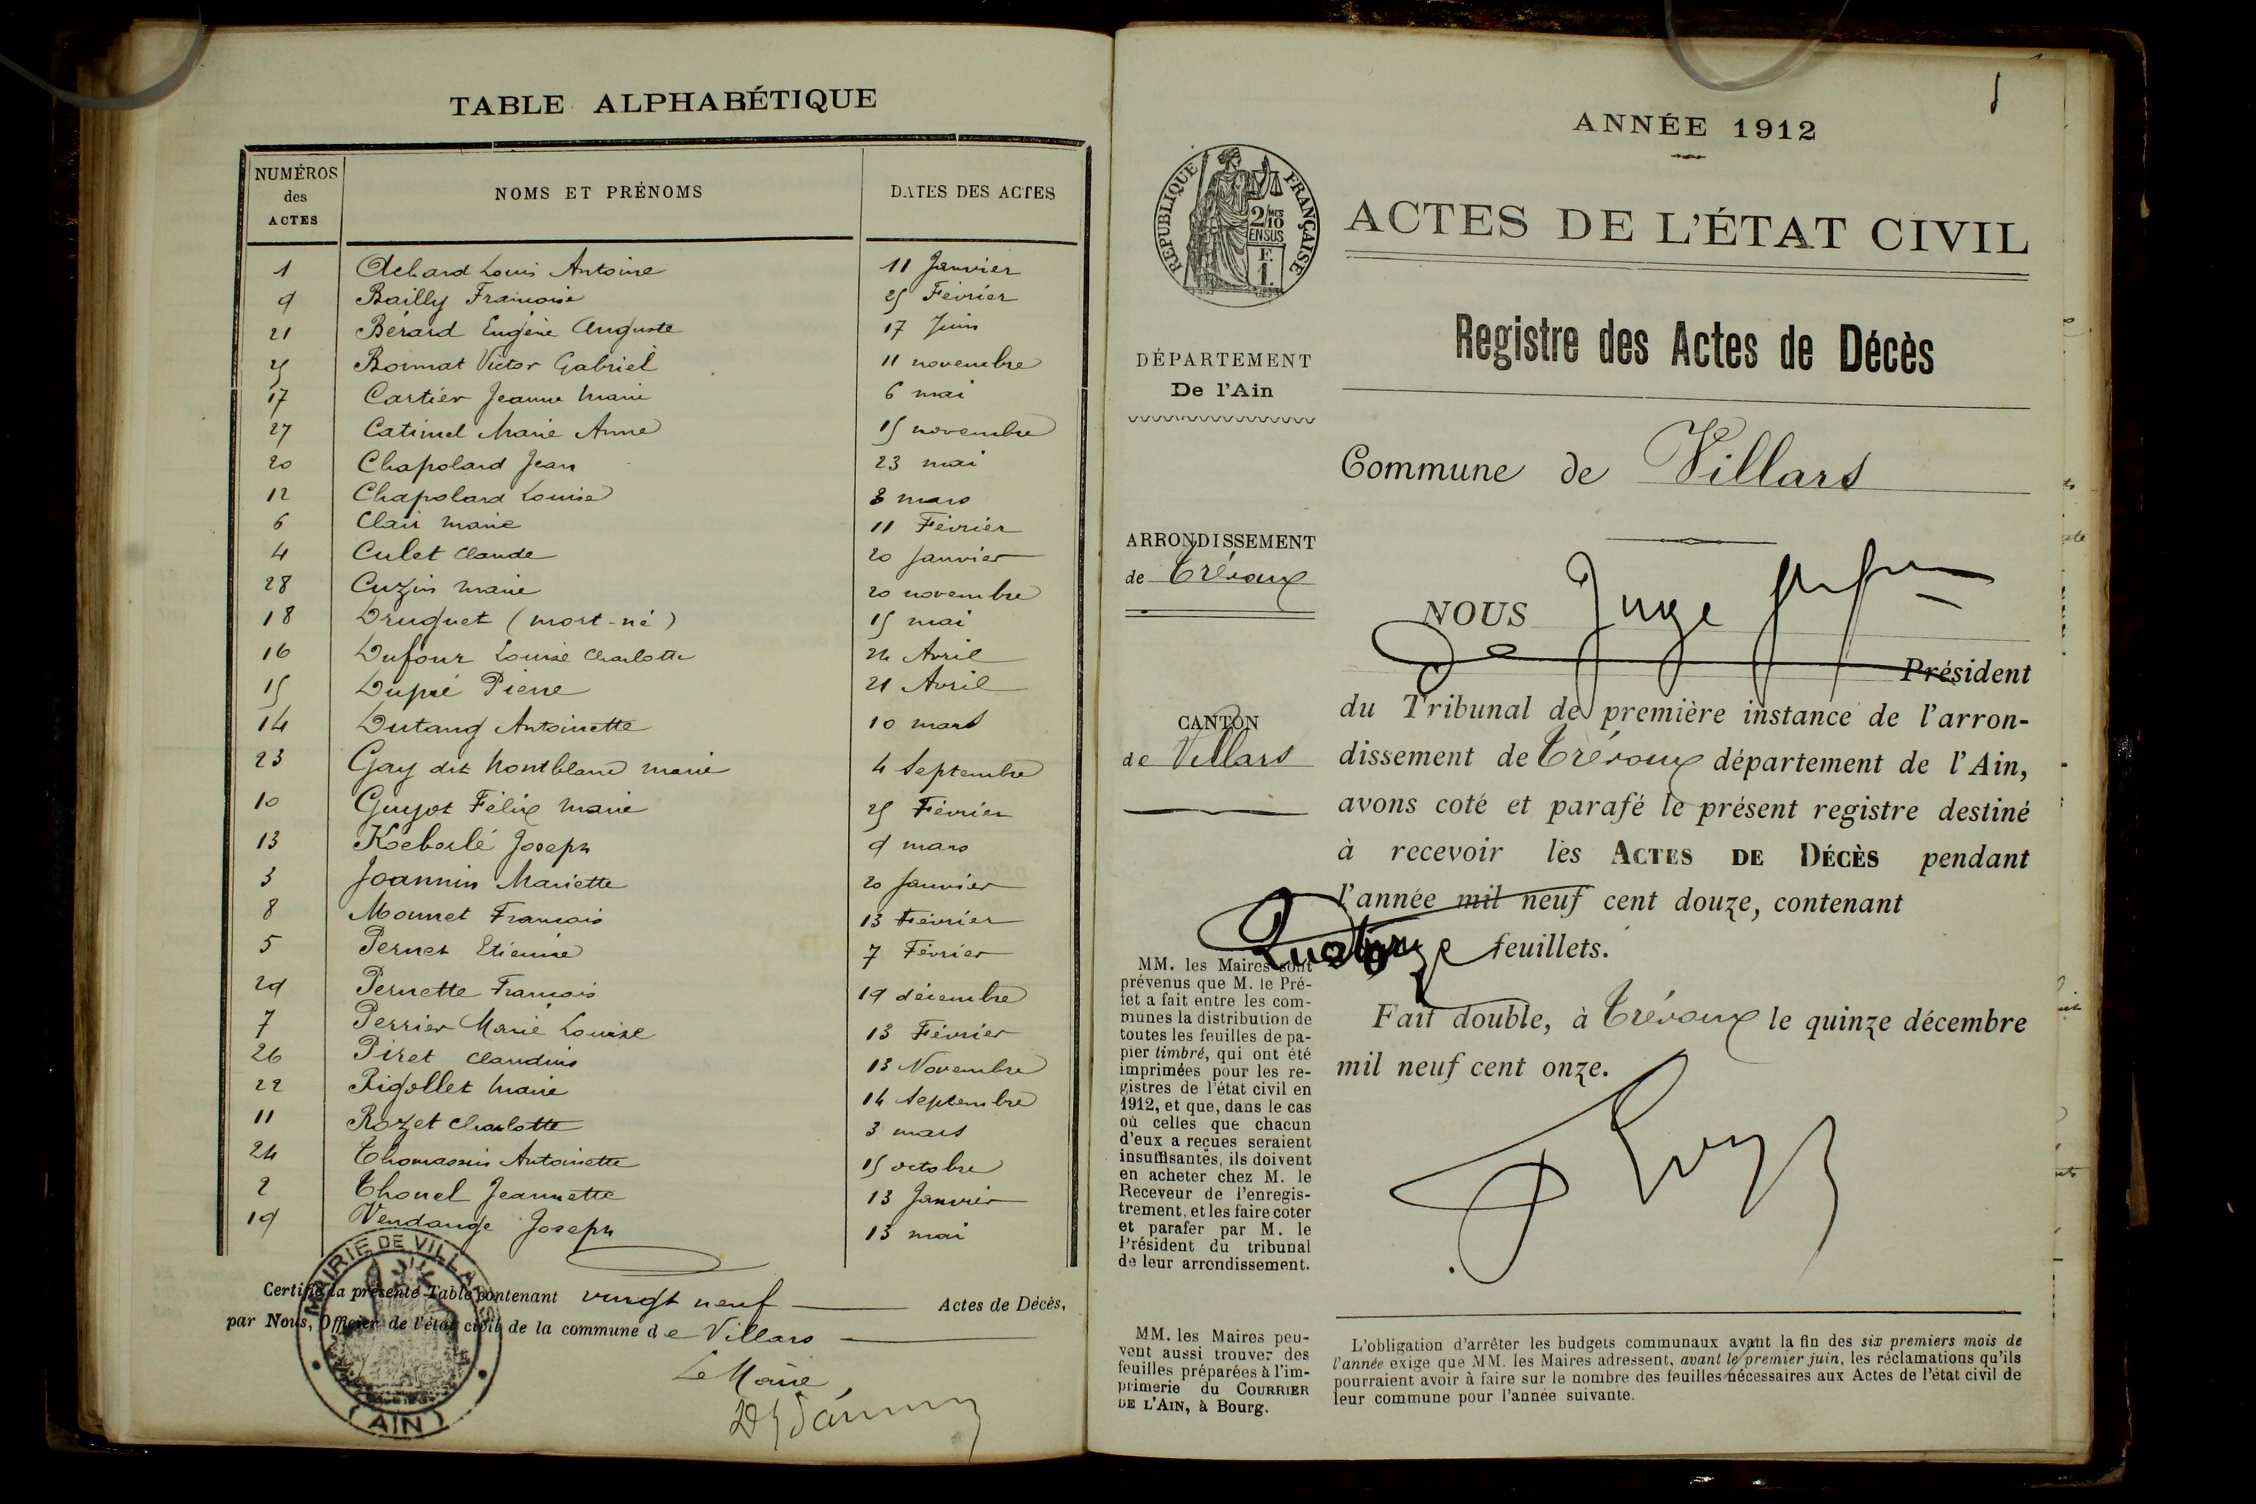 TABLE ALPHABÉTIQUE
NUMÉROS des ACTES NOMS ET PRÉNOMS DATES DES ACTES
1 Achard Louis Antoine 11 Janvier
9 Bailly Françoise 25 Février
21 Bérard Eugène Auguste 17 Juin
25 Boimat Victor Gabriel 11 novembre
17 Cartier Jeanne Marie 6 mai
27 Catimel Marie Anne 15 novembre
20 Chapolard Jean 23 mai
12 Chapolard Louise 8 mars
6 Clair marie 11 Février
4 Culet Claude 20 Janvier
28 Cuzin marie 20 novembre
18 Druguet (mort-né) 15 mai
16 Dufour Louise Charlotte 24 Avril
15 Dupré Pierre 21 Avril
14 Dutang Antoinette 10 mars
23 Gay dit Montbland marie 4 Septembre
10 Guyot Félix Marie 25 Février
13 Koeberlé Joseph 9 mars
3 Joannin Mariette 20 Janvier
8 Monnet François 13 Février
5 Pernet Etienne 7 Février
29 Pernette François 19 décembre
7 Perrier Marie Louise 13 Février
26 Piret Claudius 13 Novembre
22 Rigollet Marie 14 Septembre
11 Rozet Charlotte 3 mars
24 Thomassin Antoinette 15 octobre
2 Thonel Jeannette 13 Janvier
19 Vendange Joseph 13 mai
Certifié la présente Table contenant vingt neuf Actes de Décès,
par Nous, Officier de l'état civil de la commune de Villars
Le Maire
MAIRIE DE VILLARS
(AIN)
ANNÉE 1912
RÉPUBLIQUE FRANÇAISE
2/10 MES
EN SUS
F.
1.
ACTES DE L'ÉTAT CIVIL
Registre des Actes de Décès
DÉPARTEMENT
De l'Ain
Commune de Villars
ARRONDISSEMENT
de Trévoux
CANTON
de Villars
NOUS Juge
Président
du Tribunal de première instance de l'arron-
dissement de Trévoux département de l'Ain,
avons coté et parafé le présent registre destiné
à recevoir les ACTES DE DÉCÈS pendant
l'année mil neuf cent douze, contenant
Quatorze feuillets.
Fait double, à Trévoux le quinze décembre
mil neuf cent onze.
MM. les Maires sont
prévenus que M. le Pré-
fet a fait entre les com-
munes la distribution de
toutes les feuilles de pa-
pier timbré, qui ont été
imprimées pour les re-
gistres de l'état civil en
1912, et que, dans le cas
où celles que chacun
d'eux a reçues seraient
insuffisantes, ils doivent
en acheter chez M. le
Receveur de l'enregis-
trement, et les faire coter
et parafer par M. le
Président du tribunal
de leur arrondissement.
MM. les Maires peu-
vent aussi trouver des
feuilles préparées à l'im-
primerie du COURRIER
DE L'AIN, à Bourg.
L'obligation d'arrêter les budgets communaux avant la fin des six premiers mois de
l'année exige que MM. les Maires adressent, avant le premier juin, les réclamations qu'ils
pourraient avoir à faire sur le nombre des feuilles nécessaires aux Actes de l'état civil de
leur commune pour l'année suivante.